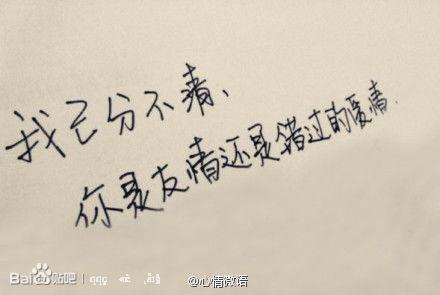 我已分不清、
你是友情还是错过的爱情.
Bai du 贴吧
@心情微语